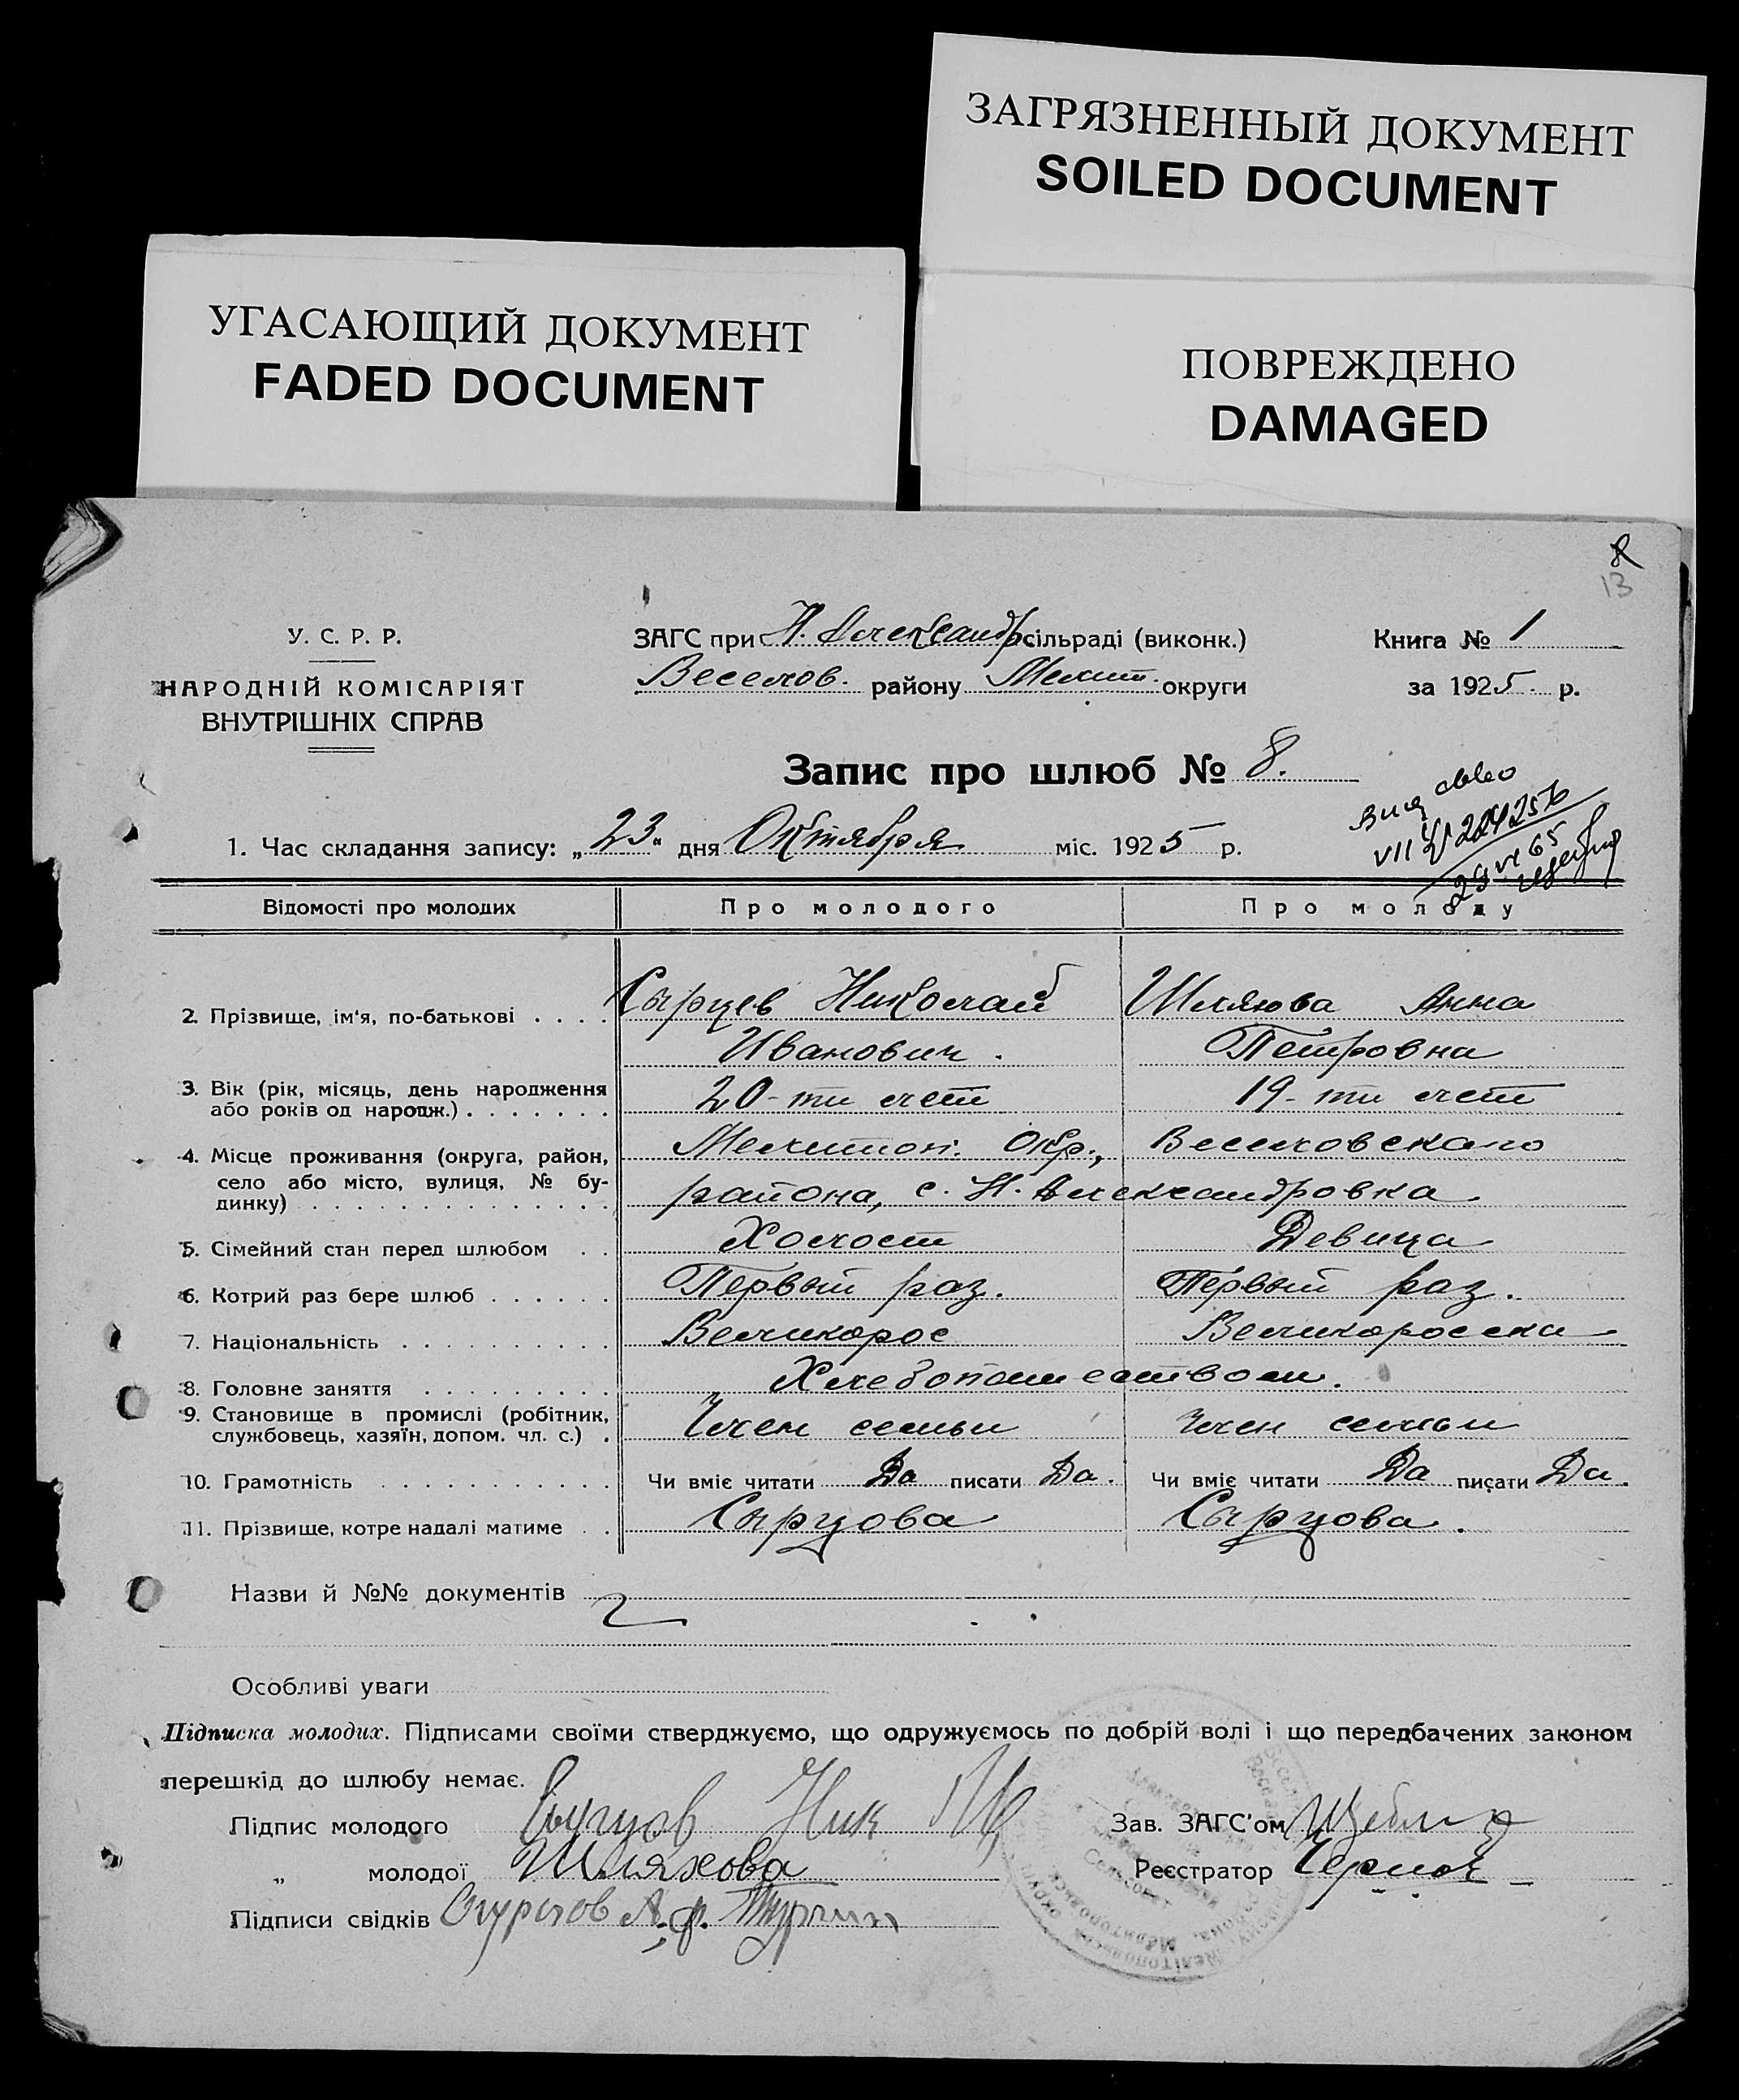 ЗАГРЯЗНЕННЫЙ ДОКУМЕНТ
SOILED DOCUMENT
УГАСАЮЩИЙ ДОКУМЕНТ
FADED DOCUMENT
ПОВРЕЖДЕНО
DAMAGED
8
13
У. С. Р. Р.
НАРОДНІЙ КОМІСАРІЯТ
ВНУТРІШНІХ СПРАВ
ЗАГС при Н. Александр сільраді (виконк.)
Веселов. району Мелит. округи
Книга № 1
за 1925 р.
Запис про шлюб № 8.
1. Час складання запису: „23" дня Октября міс. 1925 р.
VII
29 VI 65
Відомості про молодих Про молодого Про молоду
2. Прізвище, ім'я, по-батькові Сырцев Николай Шляхова Анна
Иванович. Петровна
3. Вік (рік, місяць, день народження або років од народж.) 20-ти лет 19-ти лет
4. Місце проживання (округа, район, Мелитоп. Окр., Веселовского
село або місто, вулиця, № будинку) района, с. Н. Александровка.
5. Сімейний стан перед шлюбом Холост Девица
6. Котрий раз бере шлюб Первый раз. Первый раз.
7. Національність Великорос Великоросска
8. Головне заняття Хлебопашеством.
9. Становище в промислі (робітник, службовець, хазяїн, допом. чл. с.) Член семьи Член семьи
10. Грамотність Чи вміє читати Да писати Да. Чи вміє читати Да писати Да.
11. Прізвище, котре надалі матиме Сырцова Сырцова.
Назви й №№ документів
Особливі уваги
Підписка молодих. Підписами своїми стверджуємо, що одружуємось по добрій волі і що передбачених законом
перешкід до шлюбу немає.
Підпис молодого Сырцов Ник
Зав. ЗАГС'ом
„ молодої Шляхова
Реєстратор
Підписи свідків